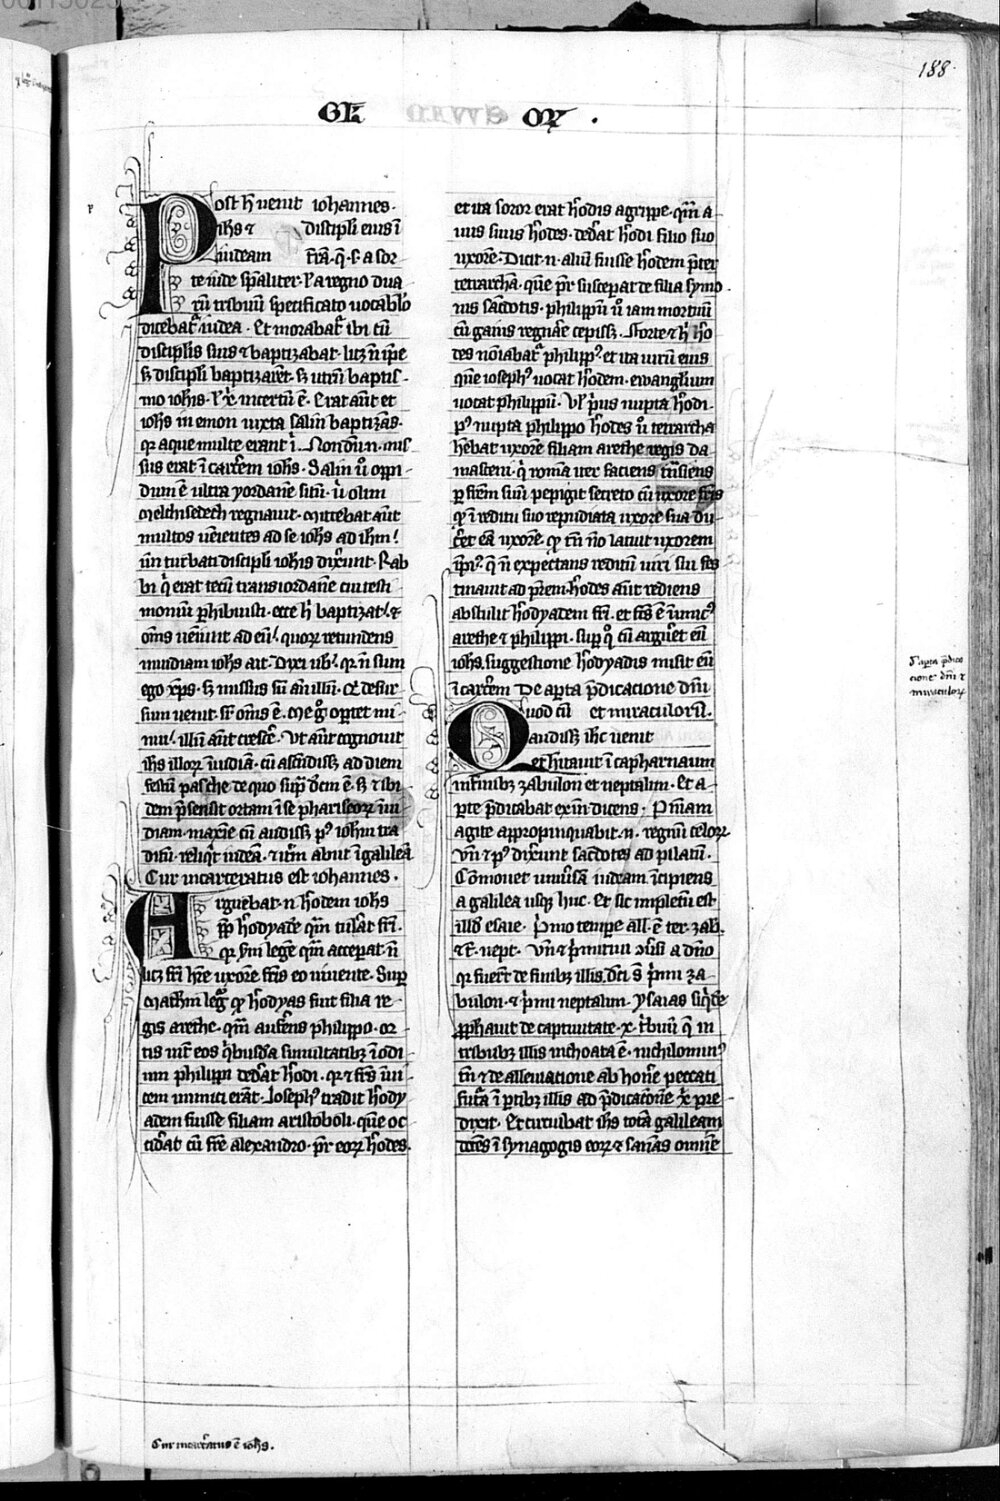 188
GE OR .
Post h̄ venit iohannes.
ih̄s ⁊ discip̄li eius ī
iudeam t̄rā. q̄. s. a sor
te iude sp̄aliter. ł a regno dua
rū tribuū specificato uocab̄lo
dicebat̄ iudea. Et morabat̄ ibi cū
disciplis suis ⁊ baptizabat. licꝫ n̄ ip̄e
sꝫ discipli baptizarēt. sꝫ utrū baptis-
mo ioh̄is. ł xp̄i incertū ē. Erat aūt et
ioh̄s in ennon iuxta salim baptizās.
qr̄ aque multe erant ī. Nondū .n. mis
sus erat ī carcerem ioh̄s. Salin ū oppi-
dum ē ultra yordanē sitū. ū olim
Melchisedech regnauit. Mittebat aūt
multos uēientes ad se ioh̄s ad ih̄m.
ūn turbati discipli ioh̄is dix̄unt. Rab
bi q̄ erat tecū transiordanē cui testi
moniū phibuisti. ecce h̄ baptizat. ⁊
om̄s ueniunt ad eū. quoꝝ retundens
inuidiam ioh̄s ait. Dixi uob̄. qr̄ n̄ sum
ego xp̄s. sꝫ missus sū an̄ illū. Qui desur
sum uenit. sr̄ om̄s ē. Me g̊ oportet mi-
nui. illū aūt cresc̄e. Vt aūt cognouit
ih̄s illoꝝ iuidiā. cū ascēdissꝫ ad diem
festū pasche de quo sup̄ dc̄m ē. sꝫ ⁊ ibi
dem p̄sensit ortam ī se phariseoꝝ inui
diam. maxīe cū audissꝫ pꝰ ioh̄m tra
ditū. reliqt̄ iudeā. ⁊ itm̄ abiit ī galileā
Cur incarceratus est iohannes.
Arguebat .n. h̄odem ioh̄s
ꝓ h̄odyade quam tulat̄ fr̄i.
qr̄ sm̄ legē quam accepat̄ n̄
licꝫ fr̄i h̄re uxorē fr̄is eo uiuente. Sup
Matheū leg̊ qꝫ h̄odyas fuit filia re-
gis arethe. quam aufens̄ philippo. or
tis int̄ eos q̄busdā simultatibꝫ ī odi
um philippi dedat̄ h̄odi. qr̄ ⁊ fr̄es īui
cem inimici erāt. Josephꝰ tradit h̄ody
adem fuisse filiam aristoboli. quē oc
cidat̄ cū fr̄e alexandro. pr̄ eoꝝ h̄odes.
et ita soror erat h̄odis agrippe. quam a-
uus suus h̄odes. dedat̄ h̄odi filio suo
uxorē. Dicit .n. aliū fuisse h̄odem p̄ter
tetrarchā. quē pr̄ suscepat̄ de filia symo.
nis sac̄dotis. philippū ū iam mortuū
cū gaius regnare cepissꝫ. Forte ⁊ h̄ h̄o
des noīabat̄ philippꝰ et ita uirū eius
quē iosephꝰ uocat h̄odem. ewangelium
uocat philippū. Vł pꝰius nupta h̄odi.
pꝰ nupta philippo h̄odes ū tetrarcha
h̄ebat uxorē filiam arethe regis da
masceni. q̄ romā iter faciens tn̄siens
p fr̄em suū pepigit secreto cū uxore fr̄is
qꝫ ī reditu suo repudiata uxore sua du
c̄et eā uxorē. qꝫ tn̄ nō latuit uxorem
ip̄iꝰ. q̄ n̄ expectans reditū uiri sui fes
tinauit ad pr̄em. h̄odes aūt rediens
abstulit h̄odyadem fr̄i. et fc̄s ē inimicꝰ
arethe ⁊ philippi. sup q̊ cū argu̅et eū
ioh̄s. suggestione h̄odyadis misit eū
ī carcerem De apta p̄dicacione dn̄i
Quod cū et miraculoꝝ.
audissꝫ ih̄c uenit
et h̄itauit ī capharnaum
in finibꝫ zabulon et neptalim. Et a-
pte p̄dicabat exī. dicens. Penitentiam
agite appropinquabit .n. regnū celoꝝ
Vn̄ ⁊ pꝰ dix̄unt sac̄dotes ad pilatū.
Cōmouet uniu̅sā iudeam īcipiens
a galilea usqꝫ huc. Et sic impletū est
illd̄ esaie. P̄mo tempe all. ē ter. zab.
⁊ t̄. nept. Vn̄ ⁊ p̄mitiui ꝯu̅si a dn̄o
qr̄ fuer̄t de finibꝫ illis. dc̄i s̄ p̄mi za-
bulon. ⁊ p̄mi neptalim. ysaias siq̄de
ꝓphauit de captiuitate .x. tribuū q̄ in
tribubꝫ illis inchoata ē. nichilominꝰ
tn̄ ⁊ de alleuiatione ab honere peccati
futa̅ ī ptibꝫ illis ad p̄dicacionē xp̄i pre
dixit. Et circuibat ih̄s totā galileam
docēs ī synagogis eoꝝ ⁊ sanās omnē
De apta p̄dica
cione dn̄i ⁊
miraculoꝝ
Cur incarc̄atus ē ioh̄s.